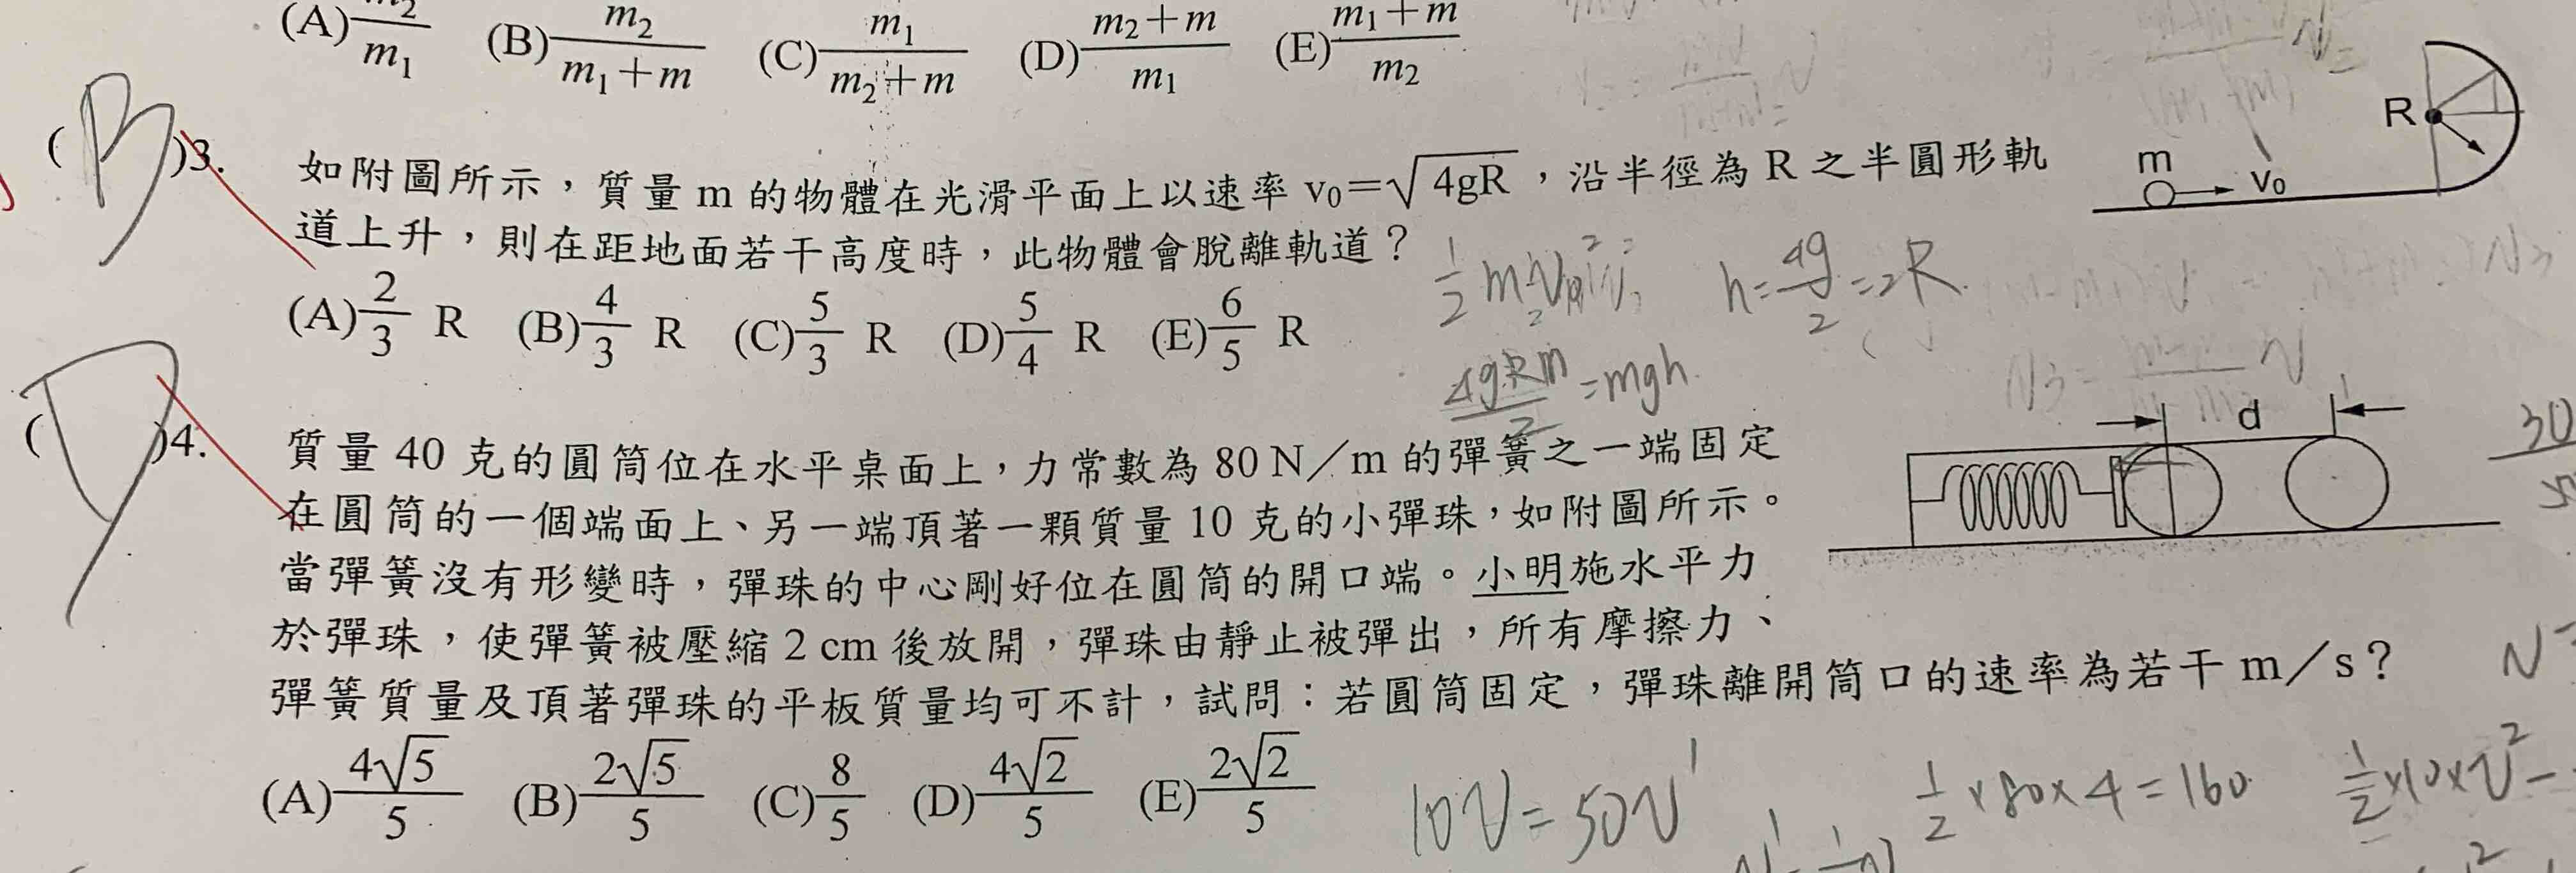 (A) m₂/m₁ (B) m₂/(m₁+m) (C) m₁/(m₂+m) (D) (m₂+m)/m₁ (E) (m₁+m)/m₂
(B)3. 如附圖所示，質量 m 的物體在光滑平面上以速率 v₀=√4gR，沿半徑為 R 之半圓形軌
道上升，則在距地面若干高度時，此物體會脫離軌道？
(A) 2/3 R (B) 4/3 R (C) 5/3 R (D) 5/4 R (E) 6/5 R
R
m
v₀
h=4g/2=2R
4gRm/2=mgh
(D)4. 質量 40 克的圓筒位在水平桌面上，力常數為 80 N／m 的彈簧之一端固定
在圓筒的一個端面上、另一端頂著一顆質量 10 克的小彈珠，如附圖所示。
當彈簧沒有形變時，彈珠的中心剛好位在圓筒的開口端。小明施水平力
於彈珠，使彈簧被壓縮 2 cm 後放開，彈珠由靜止被彈出，所有摩擦力、
彈簧質量及頂著彈珠的平板質量均可不計，試問：若圓筒固定，彈珠離開筒口的速率為若干 m／s？
(A) 4√5/5 (B) 2√5/5 (C) 8/5 (D) 4√2/5 (E) 2√2/5
d
10V=50V'
1/2×80×4=160
1/2×10×V²